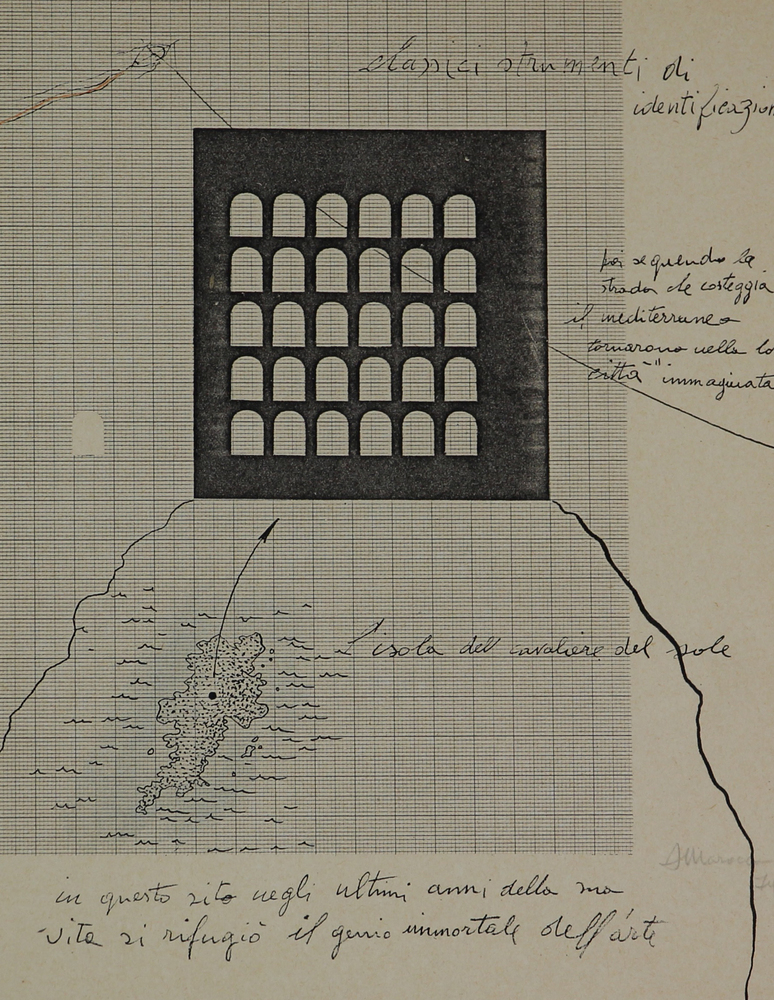 classici strumenti di
identificazion
poi seguendo la
strada che costeggia
il mediterraneo
tornarono nella lo
città "immaginata
L'isola del cavaliere del sole
in questo sito negli ultimi anni della sua
vita si rifugiò il genio immortale dell'arte